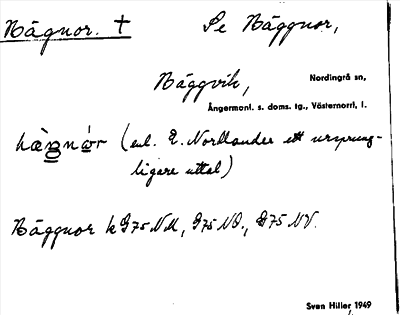 Bägnor. † Se Bäggnor,
Bäggvik, Nordingrå sn,
Ångermanl. s. doms. tg., Västernorrl. l.
(enl. E. Nordlander ett ursprung-
ligare uttal)
Bäggnor k G75 NV.
Sven Hiller 1949